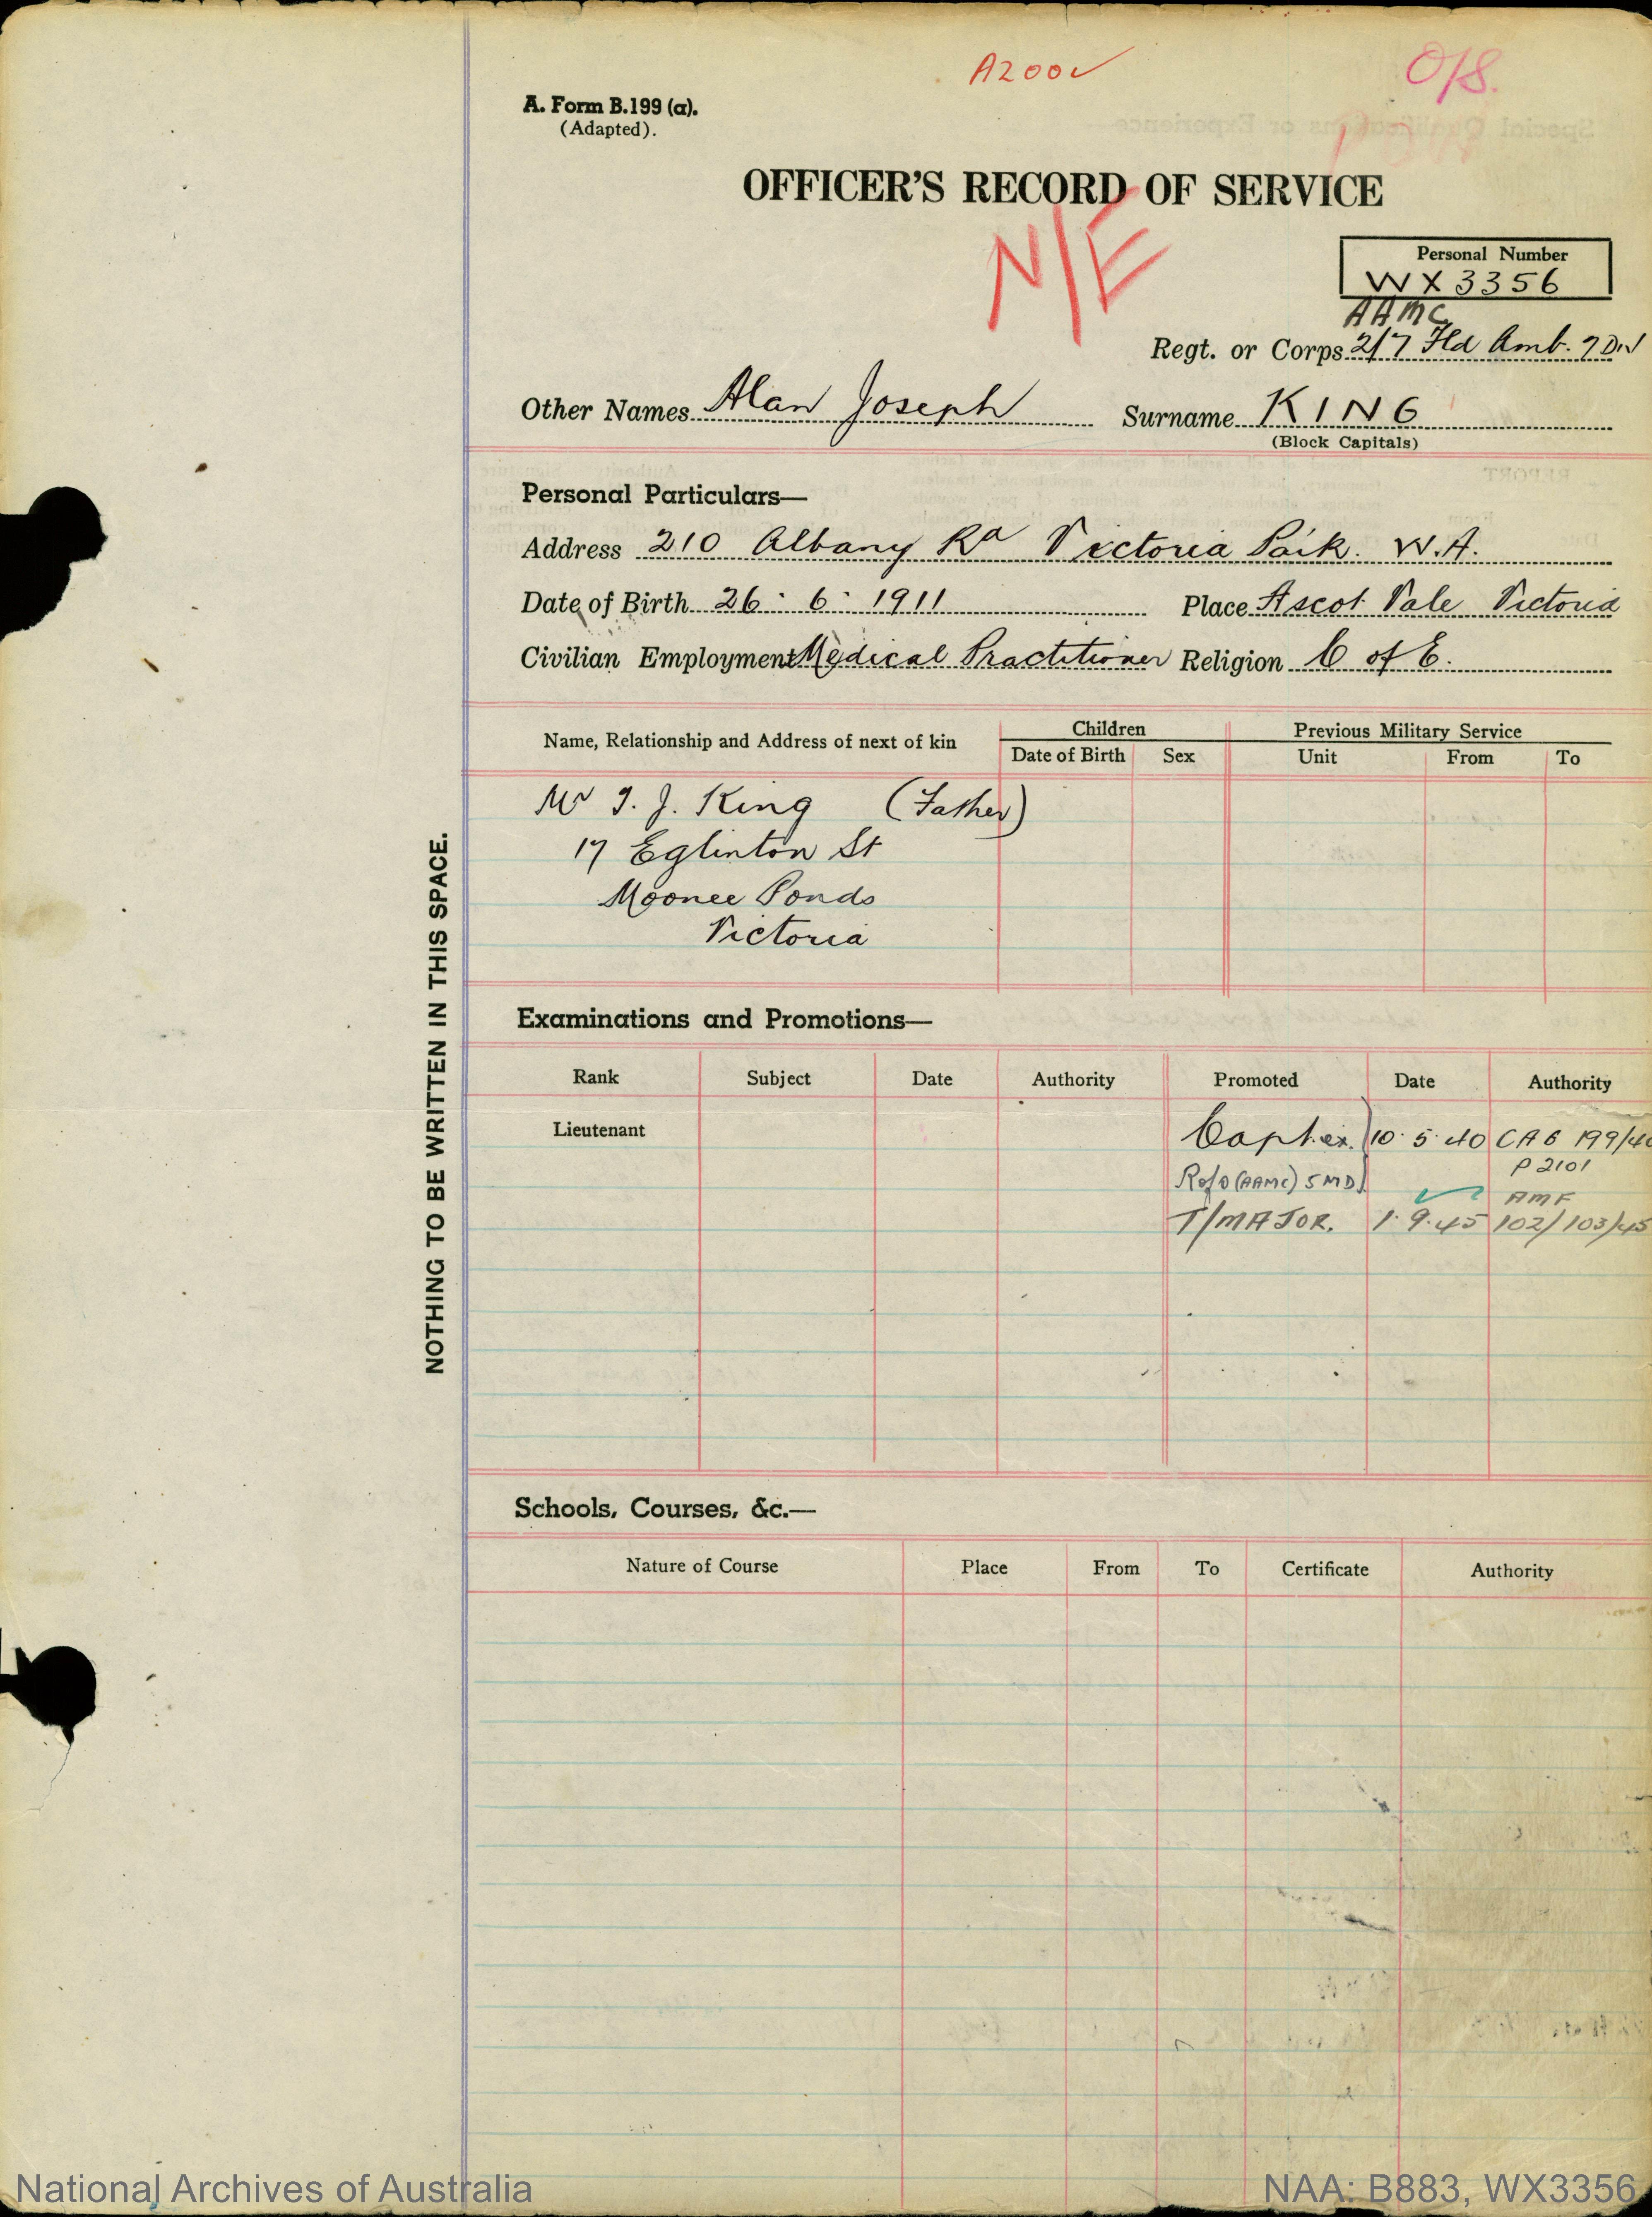 A200
O/S.
A. Form B.199 (a).
(Adapted).
OFFICER'S RECORD OF SERVICE
N/E
Personal Number
WX3356
AAMC
Regt. or Corps 2/7 Fld Amb. 7 Div
Other Names Alan Joseph Surname KING
(Block Capitals)
Personal Particulars—
Address 210 Albany Rd Victoria Park. W.A.
Date of Birth 26 : 6 : 1911 Place Ascot Vale Victoria
Civilian Employment Medical Practitioner Religion C of E.
Name, Relationship and Address of next of kin Children Previous Military Service
Date of Birth Sex Unit From To
Mr J. J. King (Father)
17 Eglinton St
Moonee Ponds
Victoria
Examinations and Promotions—
Rank Subject Date Authority Promoted Date Authority
Lieutenant Capt. ex. 10. 5. 40 CAG 199/40
RofO (AAMC) 5 MD P 2101
AMF
T/MAJOR. 1. 9. 45 102/103/45
Schools, Courses, &c.—
Nature of Course Place From To Certificate Authority
NOTHING TO BE WRITTEN IN THIS SPACE.
National Archives of Australia NAA: B883, WX3356